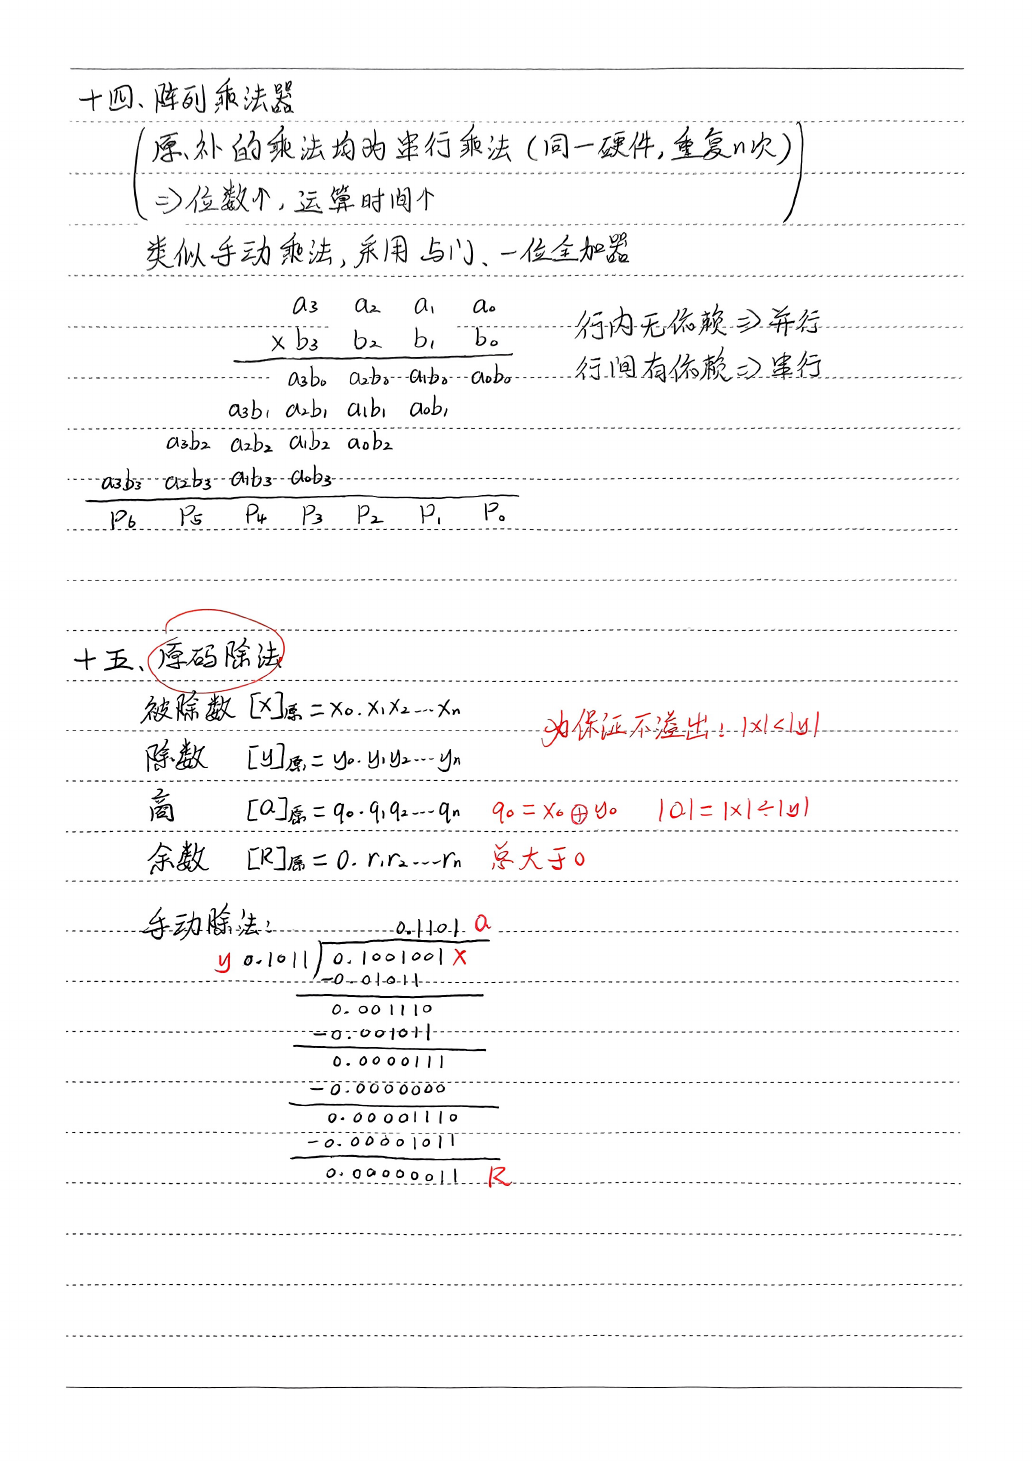 十四、阵列乘法器
(原、补的乘法均为串行乘法(同一硬件,重复n次)
⇒位数个,运算时间个)
类似手动乘法,采用与门、一位全加器
a3 a2 a1 a0
× b3 b2 b1 b0
行内无依赖⇒并行
行间有依赖⇒串行
a3b0 a2b0 a1b0 a0b0
a3b1 a2b1 a1b1 a0b1
a3b2 a2b2 a1b2 a0b2
a3b3 a2b3 a1b3 a0b3
P6 P5 P4 P3 P2 P1 P0
十五、原码除法
被除数 [X]原=X0.X1X2…Xn
为保证不溢出:|x|<|y|
除数 [y]原=y0.y1y2…yn
商 [Q]原=q0.q1q2…qn q0=x0⊕y0 |Q|=|x|÷|y|
余数 [R]原=0.r1r2…rn 总大于0
手动除法:
0.1101 Q
y 0.1011 0.1001001 X
-0.01011
0.001110
-0.001011
0.0000111
-0.0000000
0.00001110
-0.00001011
0.00000011 R